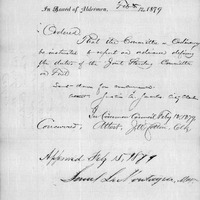 In Board of Aldermen. Feb 12, 1879
Ordered
That the Committee on Ordinances
be instructed to report an ordinance defining
the duties of the Joint Standing Committee
on Fuel
Sent down for concurrence
City Clerk
In Common Council Feby 13, 1879
Concurred, Attest, Clk
Approved Feby 15, 1879
Mayor